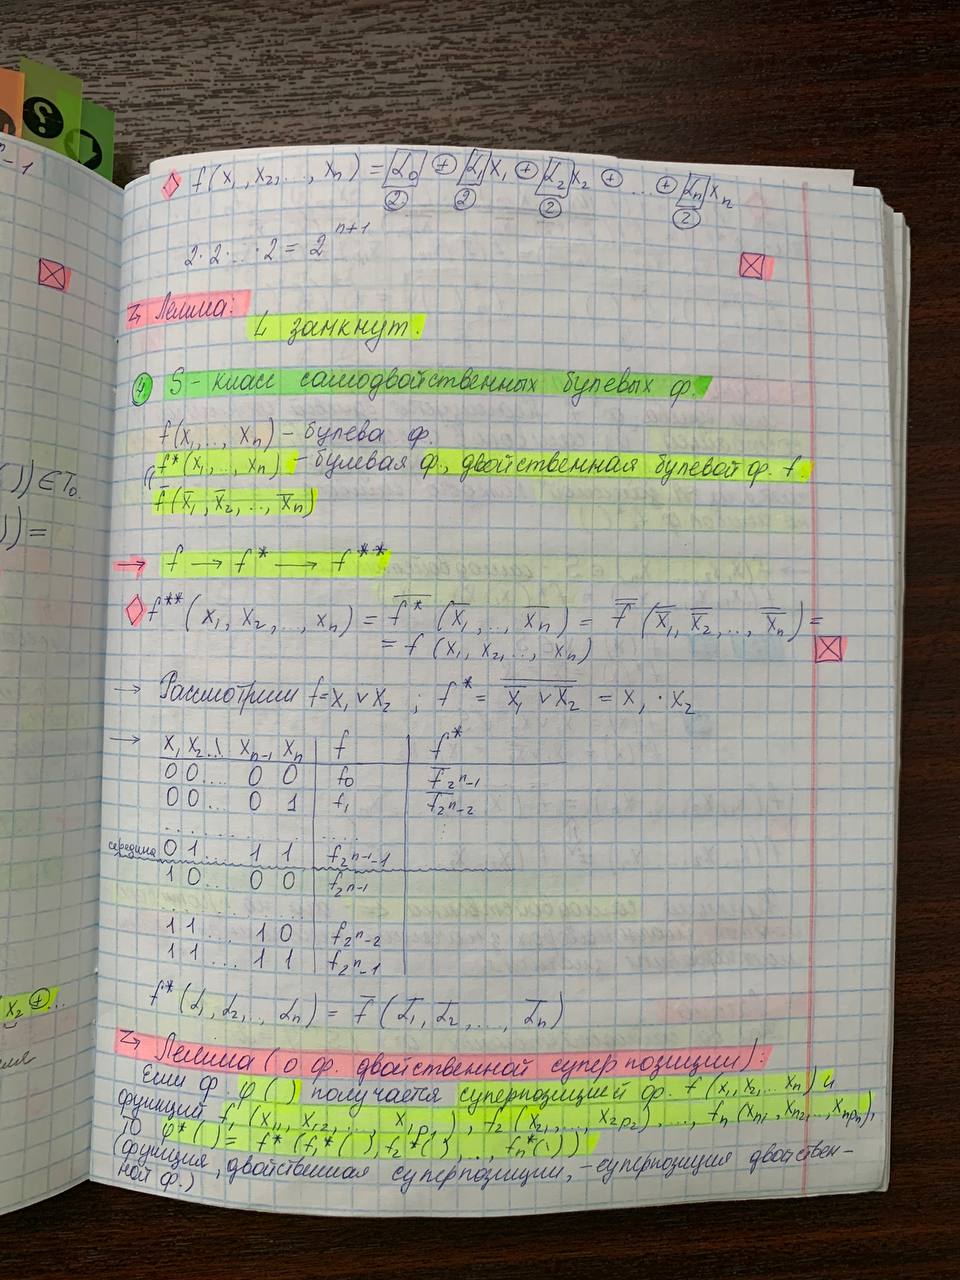 n-1
f(x₁, x₂, ..., xₙ) = α₀ ⊕ α₁x₁ ⊕ α₂x₂ ⊕ ... ⊕ αₙxₙ
2 2 2 2
2·2·...·2 = 2ⁿ⁺¹
Лемма:
L замкнут.
④ S - класс самодвойственных булевых ф.
f(x₁, ..., xₙ) - булева ф.
f*(x₁, ..., xₙ) - булевая ф., двойственная булевой ф. f.
f̅(x̅₁, x̅₂, ..., x̅ₙ)
) ∈ T₀.
) =
→ f → f* → f**
f**(x₁, x₂, ..., xₙ) = \overline{f*}(x̅₁, ..., x̅ₙ) = f̿(x̿₁, x̿₂, ..., x̿ₙ) =
= f(x₁, x₂, ..., xₙ)
→ Рассмотрим f = x₁ ∨ x₂ ; f* = \overline{x̅₁ ∨ x̅₂} = x₁ · x₂
→ x₁ x₂ ... xₙ₋₁ xₙ | f | f*
0 0 ... 0 0 | f₀ | f̅_{2ⁿ-1}
0 0 ... 0 1 | f₁ | f̅_{2ⁿ-2}
. . . . . . . . . . ⋮
середина 0 1 ... 1 1 | f_{2ⁿ⁻¹-1}
1 0 ... 0 0 | f_{2ⁿ⁻¹}
1 1 ... 1 0 | f_{2ⁿ-2}
1 1 ... 1 1 | f_{2ⁿ-1}
x₂ ⊕ ...
f*(α₁, α₂, ..., αₙ) = f̅(α̅₁, α̅₂, ..., α̅ₙ)
Лемма (о ф. двойственной суперпозиции):
Если ф. φ( ) получается суперпозицией ф. f(x₁, x₂, ... xₙ) и
функций f₁(x₁₁, x₁,₂, ..., x₁ₚ₁), f₂(x₂₁, ..., x₂ₚ₂), ..., fₙ(xₙ₁, xₙ₂, ..., xₙₚₙ),
то φ*( ) = f*(f₁*( ), f₂*( ), ..., fₙ*( ))
(функция, двойственная суперпозиции, - суперпозиция двойствен-
ной ф.)